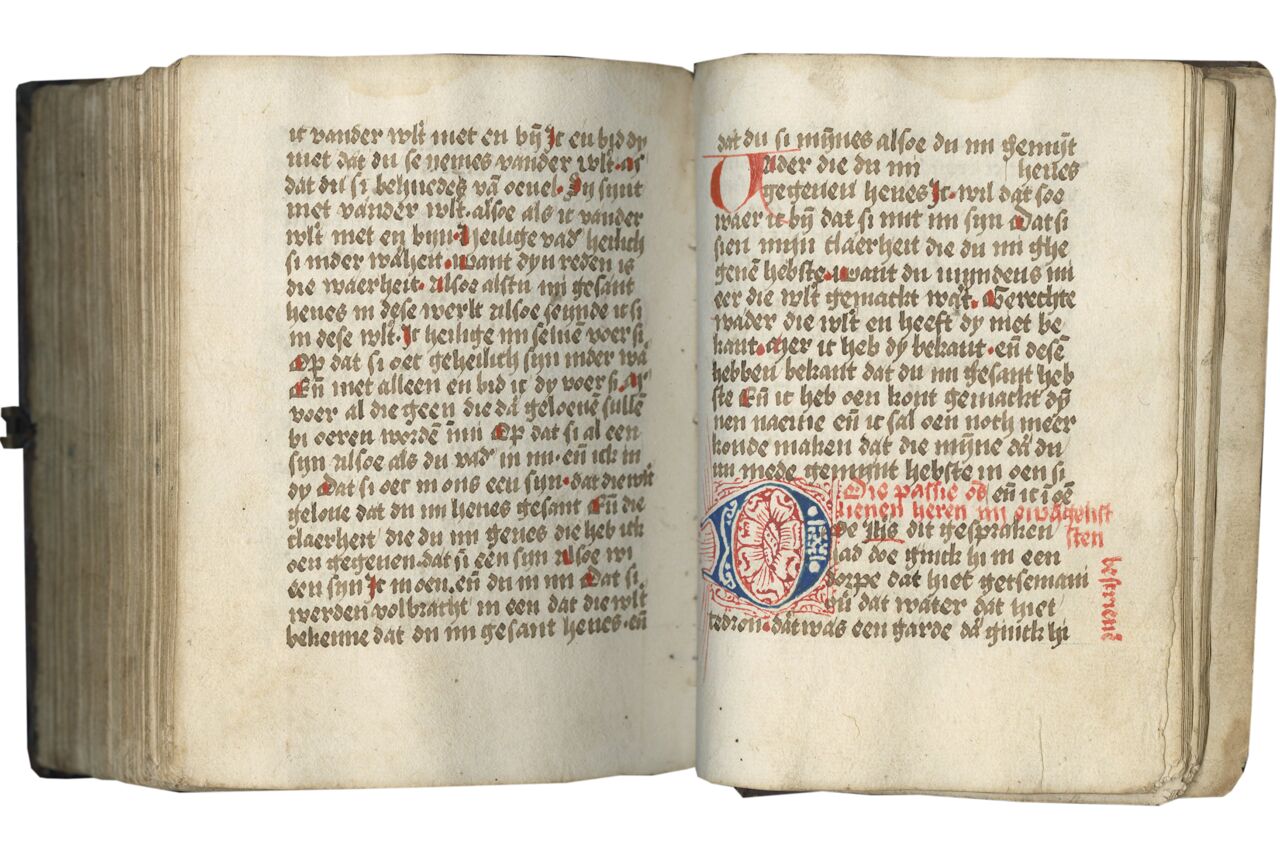 ic vander wlt niet en byn Ic en bid dy
niet dat du se nemes vander wlt. as
dat du si behuedes vā oevel. Sy synt
niet vander wlt. alsoe als ic vander
wlt niet en byn. Heilige vad heilich
si inder wāheit. want dyn reden is
die waerheit. Alsoe alstu mi gesant
heves in dese werlt Alsoe seynde ic si
in dese wlt. Ic heilige mi selvē voer si.
Op dat si oec geheilich syn inder wā
Eñ niet alleen en bid ic dy voer si. as
voer al die geen die dā geloevē sullē
bi oeren wordē inn Op dat si al een
syn Alsoe als du vad in mi. eñ ick in
dy Dat si oec in ons een syn. dat die wlt
gelove dat du mi heves gesant Eñ die
claerheit die du mi geves die heb ick
oen gegeven. dat si een syn Alsoe wi
een syn Ic in oen. eñ du in mi Dat si
werden volbracht in een dat die wlt
bekenne dat du mi gesant heves. eñ
dat du si mynnes alsoe du mi gemyt
Vader die du mi heves
gegeven heves Ic. wil dat soe
waer ic byn dat si mit mi syn Dat si
sien mijn claerheit die du mi ghe
gevē hebste. want du mindeus mi
eer die wlt gemackt wat. Gerechte
vader die wlt en heeft dy niet be
kant. Mer ic heb dy bekant. eñ desē
hebben bekant dat du mi gesant heb
ste Eñ ic heb oen kont gemackt dy
nen naeme eñ ic sal oen noch meer
konde maken dat die mynne dā du
mi mede gemynt hebste in oen si
eñ ic ī oē
Die passie ōs
lienen heren in ewāgelist
sten
bescrievē
Doe Ihs dit gesproken
had doe ginck hi in een
dorpe dat hiet getsemani
dat water dat hiet
cedron. dat was een garde dā ginck hi